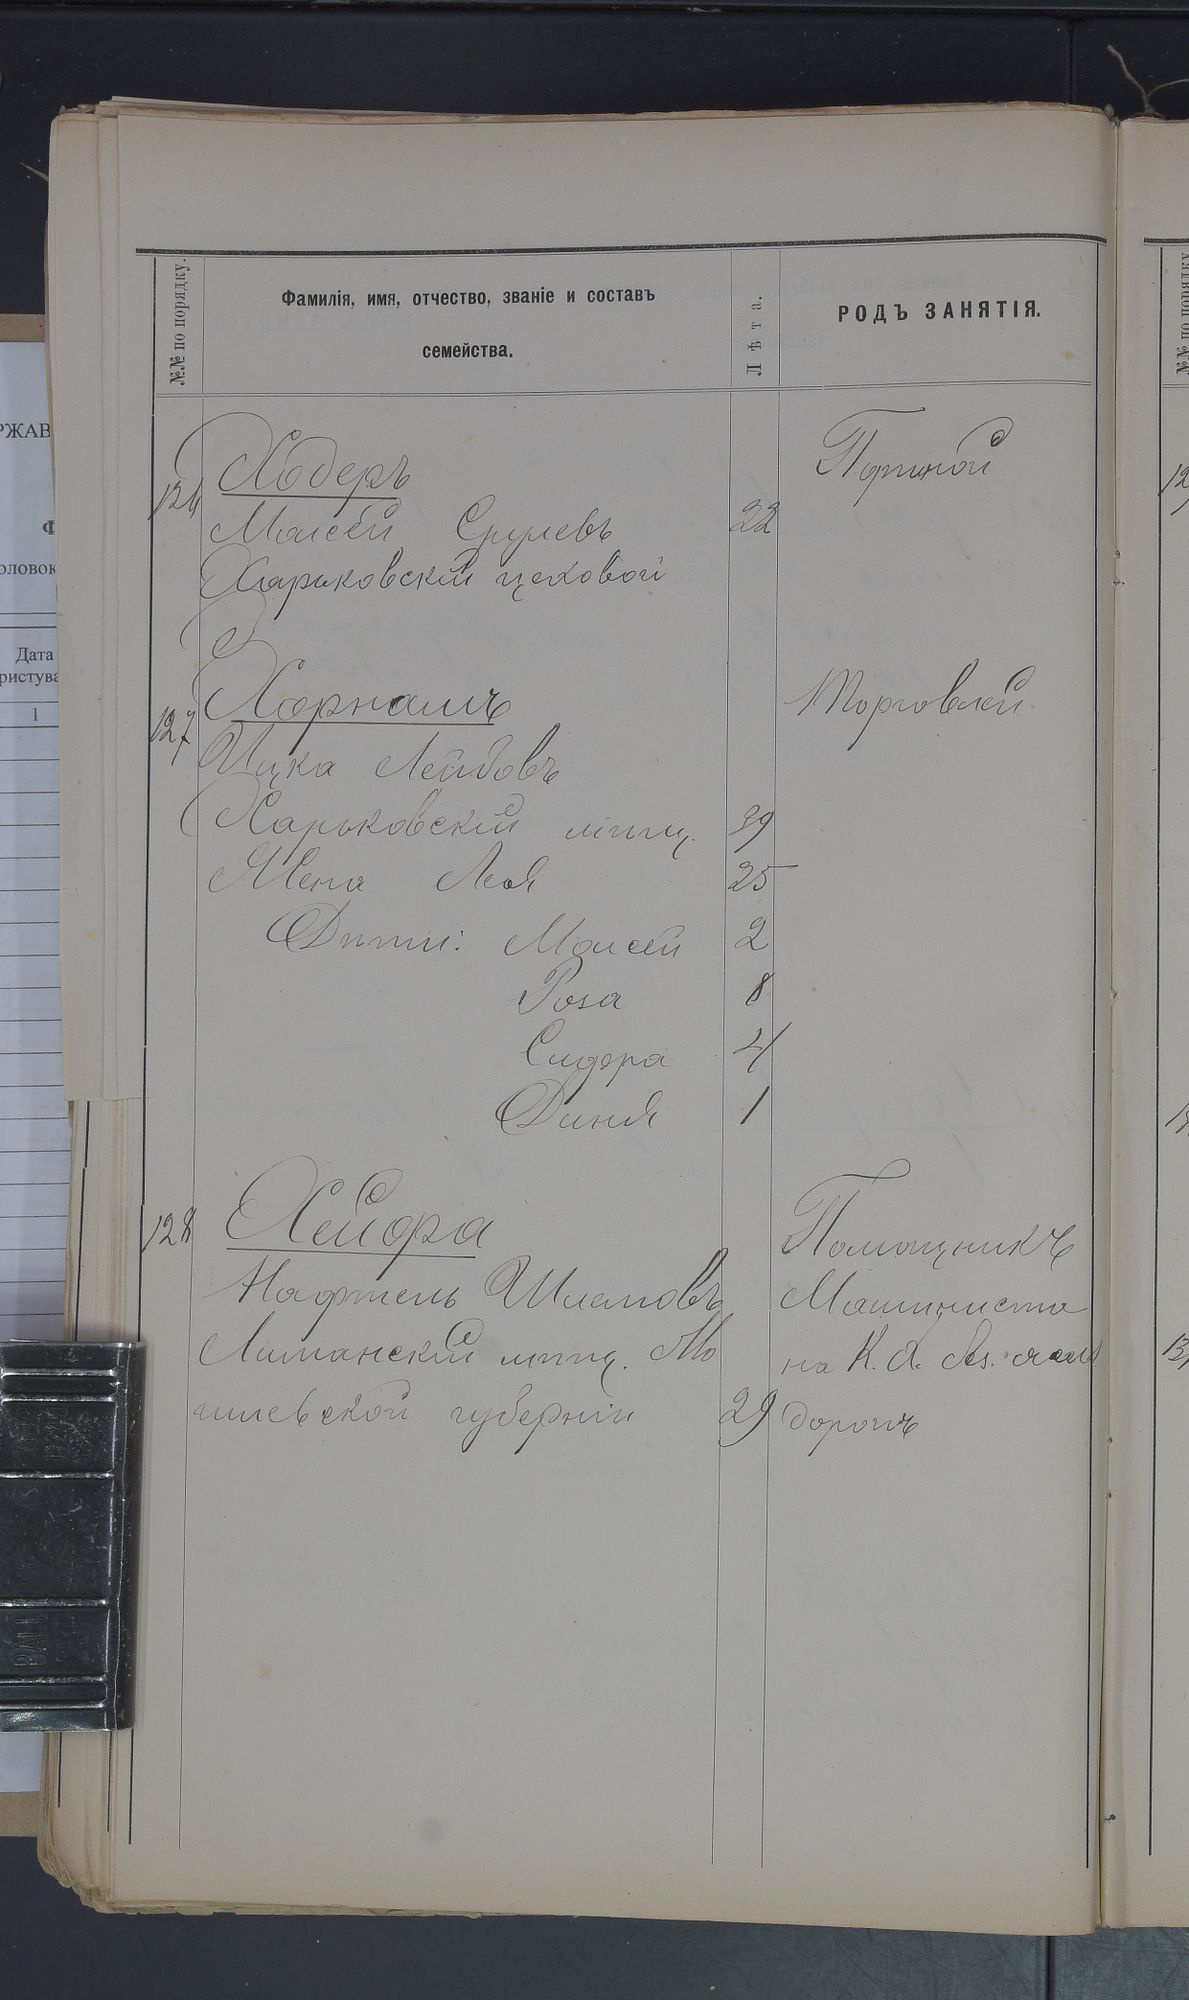 №№ по порядку.
Фамилія, имя, отчество, званіе и составъ
семейства.
Лѣта.
РОДЪ ЗАНЯТІЯ.
126 Ходеръ Портной
Моисей Срулевъ 22
Харьковскій цеховой
127 Торговлей
Ицка Лейбовъ
Харьковскій мѣщ. 39
Жена Лея 25
Дѣти: Моисей 2
Роза 8
Сидора 4
Диня 1
128 Хейфа Помощникъ
Шлемовъ Машиниста
мѣщ. Мо на К. Х. Аз. жел.
гилевской губерніи 29 дорогѣ
РЖАВ
Ф
оловок
Дата
ристува
1
№№ по порядку